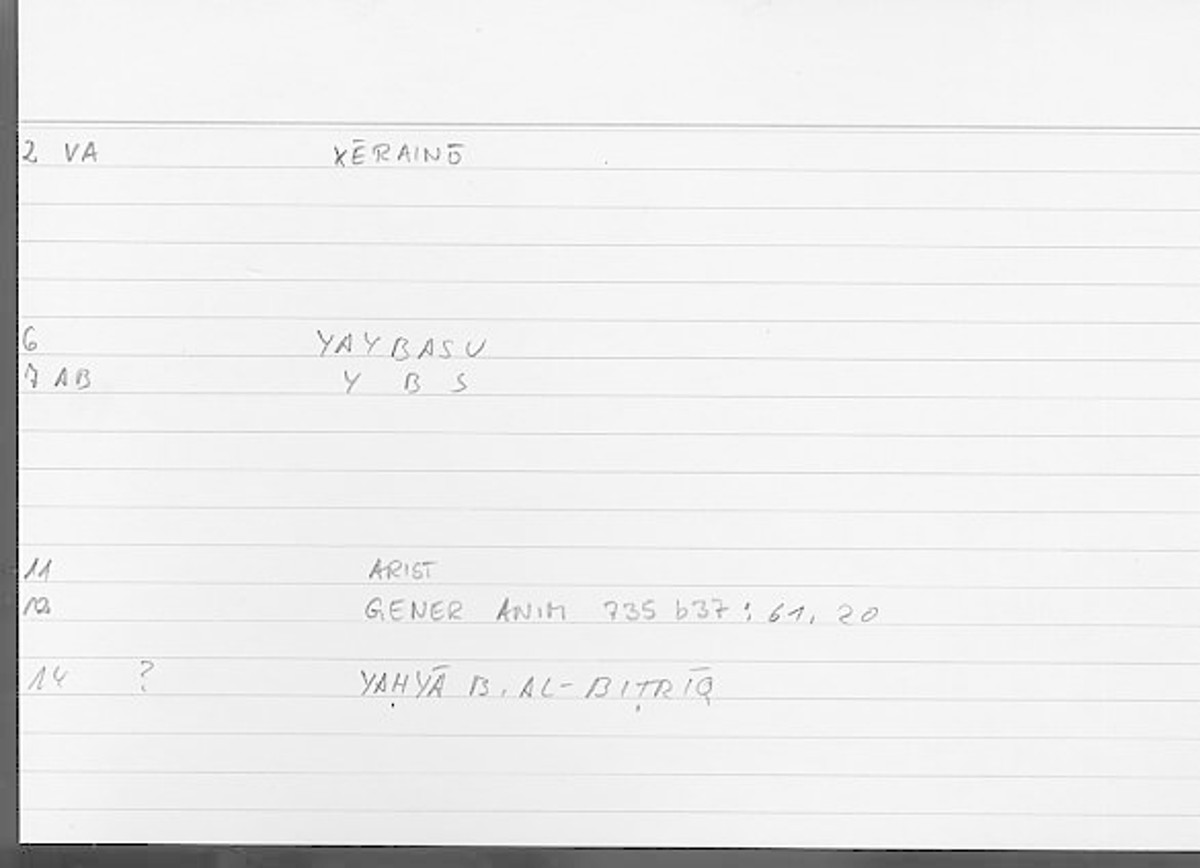 2 VA XĒRAINŌ
6 YAYBASU
7 AB Y B S
11 ARIST
12 GENER ANIM 735 b37 : 61, 20
14 ? YAḤYĀ B. AL-BIṬRĪQ